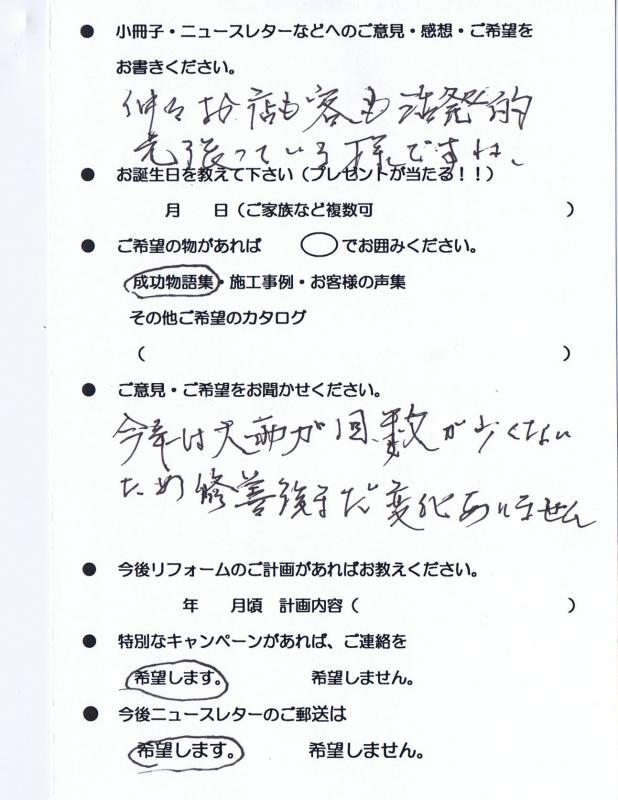 ● 小冊子・ニュースレターなどへのご意見・感想・ご希望を
お書きください。
仲々お店も客も活発的
見張っている様ですね、
● お誕生日を教えて下さい（プレゼントが当たる！！）
月　日（ご家族など複数可　）
● ご希望の物があれば　◯でお囲みください。
成功物語集・施工事例・お客様の声集
その他ご希望のカタログ
（　）
● ご意見・ご希望をお聞かせください。
今年は大雨が回数が少くない
ため修善後まだ変化ありません
● 今後リフォームのご計画があればお教えください。
年　月頃　計画内容（　）
● 特別なキャンペーンがあれば、ご連絡を
希望します。　希望しません。
● 今後ニュースレターのご郵送は
希望します。　希望しません。